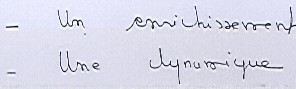 - Un enrichissement
- Une dynamique